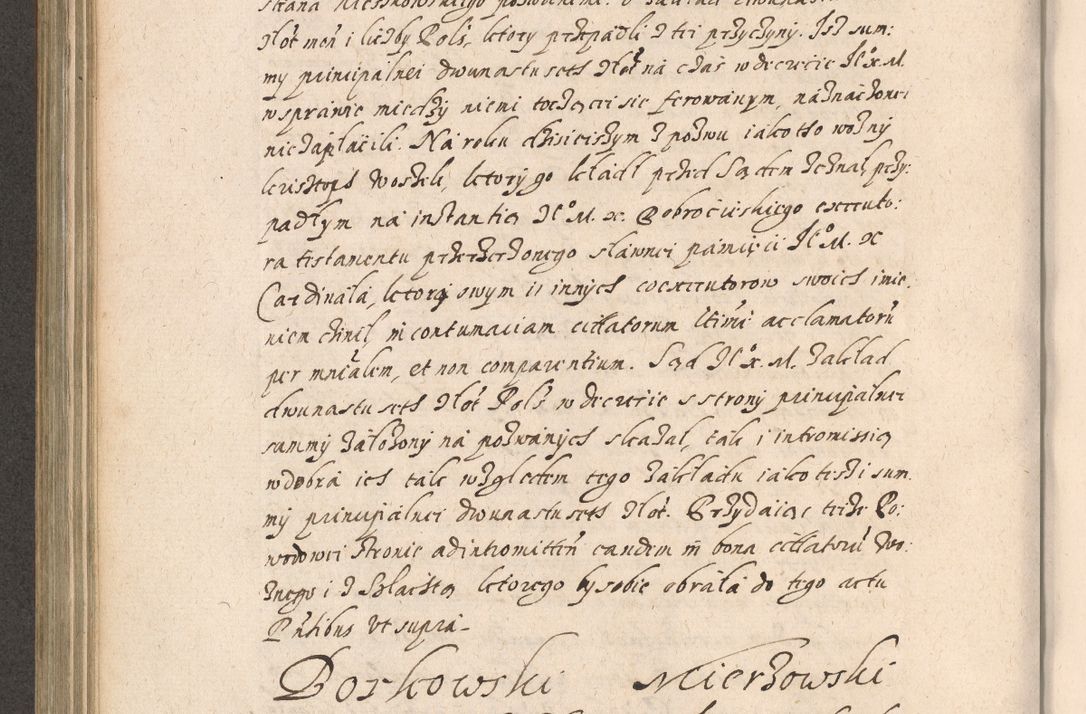 złot mon i liczby Pols, ktory przepadli z tei przyczyny. Isz sum:
my principalnei dwunastu seth złot na czas w decrecie Jº x. M.
w sprawie miedzy niemi toczącei sie ferowanym, naznaczonei
niezapłacili. Na roku dzisieiszym z pozwu iako tho wozny
Krisztoph Woszek, ktory go kładł przed Sądem zeznał, przy:
padłym na instantią Jº M. x. Dobrocieskiego executo:
ra testamentu przerzeczonego sławnei pamięci Jº M. x
Cardinała, ktory owym ii innych coexecutorow swoich imie:
niem czinił, in contumaciam citatorum ltimé acclamatorū
per mnialem, et non comparentium. Sąd Jº x. M. zakład
dwunastu seth złot Pols w decrecie s strony principalnei
summy założony na pozwanych skazał, tak i intromissią
w dobra ich tak względem tego zakładu iako teszi sum
my principalnei dwunastu seth złot. Przydaiąc teize Po:
wodowei stronie ad intromitten eandem in bona citatorū Wo:
znego i z Szlachtą ktorego by sobie obrała do tego actu
Pntibus vt supra_
Borkowski Mierzowski